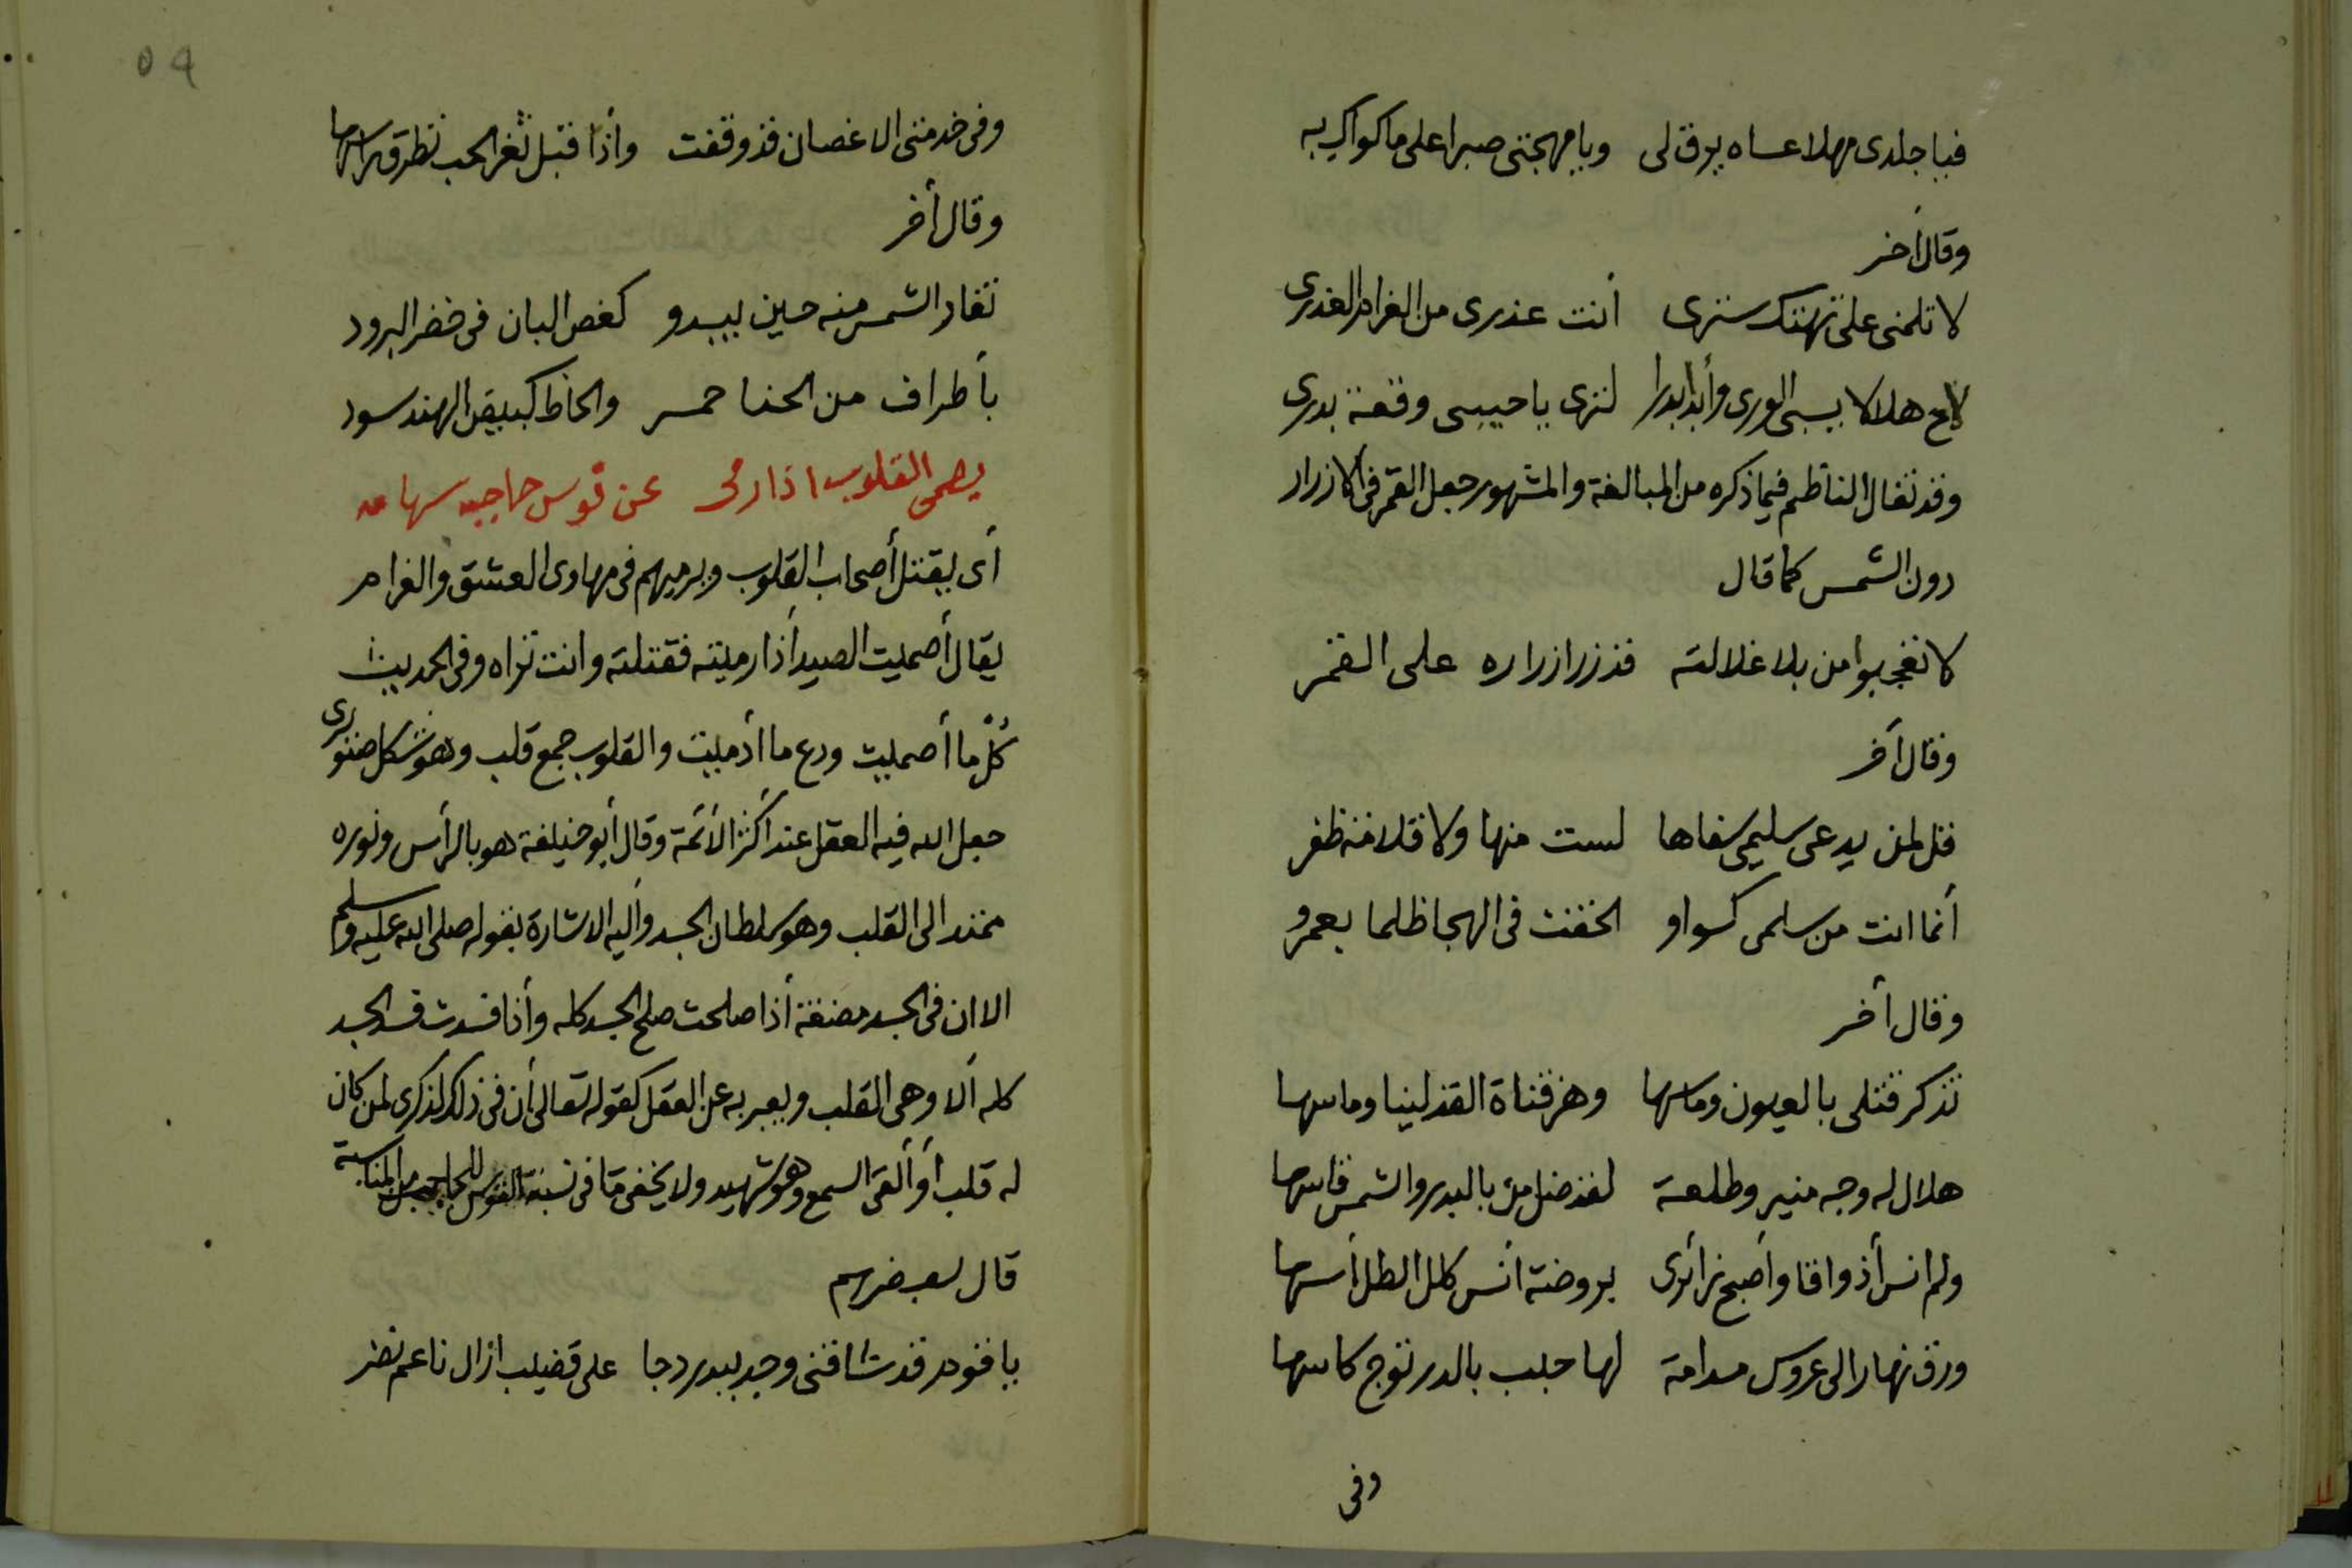 فيا جلدى مهلا عساه يرق لى ويا مهجتى صبرا على ما كواك به
وقال أخر
لا تلمنى على تهتك سترى أنت عذرى من الغرام العذرى
لاح هلالا يسبى الورى وأبدا بدرا لترى يا حبيبى وقعة بدرى
وقد تغال الناظم فيما ذكره من المبالغة والمشهور جعل القمر فى الازرار
دون الشمس كما قال
لا تعجبوا من بلا غلالته قد زر ازراره على القمر
وقال أخر
قل لمن يدعى سليمى سفاها لست منها ولا قلامة ظفر
أنما انت من سلمى كسواو الحقت فى الهجا ظلما بعمرو
وقال أخر
تذكر قتلى بالعيون وماسها وهز قناة القد لينا وماسها
هلال له وجه منير وطلعة لقد ضل من بالبدر والشمس قاسها
ولم انس أذ وافا وأصبح زائرى بروضة أنس كلل الطل أسها
وزف نهارا لى عروس مدامة لها حبب بالدر توج كاسها
وفى
٥٩
وفى خدمتى الاغصان قد وقفت وأذا قبل ثغر الحب تطرق راسها
وقال أخر
تغار الشمس منه حين يبدو كغصن البان فى خضر البرود
بأطراف من الحنا حمر والحاظ كبيض الهند سود
يصمى القلوب اذا رمى عن قوس حاجبه سهامه
أى يقتل أصحاب القلوب ويرميهم فى مهاوى العشق والغرام
يقال أصميت الصيد أذا رميته فقتلته وانت تراه وفى الحديث
كل ما أصميت ودع ما أذميت والقلوب جمع قلب وهو شكل صنوبرى
جعل الله فيه العقل عند أكثر الأئمة وقال أبو حنيفة هو بالرأس ونوره
ممتد الى القلب وهو سلطان الجسد وأليه الاشارة بقوله صلى الله عليه وسلم
الا ان فى الجسد مضغة أذا صلحت صلح الجسد كله وأذا فسدت فسد الجسد
كله ألا وهى القلب ويعبر به عن العقل كقوله تعالى أن فى ذلك لذكرى لمن كان
له قلب أو ألقى السمع وهو شهيد ولا يخفى ما فى نسبة القوس للحاجب من المناسبة
قال بعضهم
يا قوم قد شاقنى وجد ببدر دجا على قضيب ناعم نضر